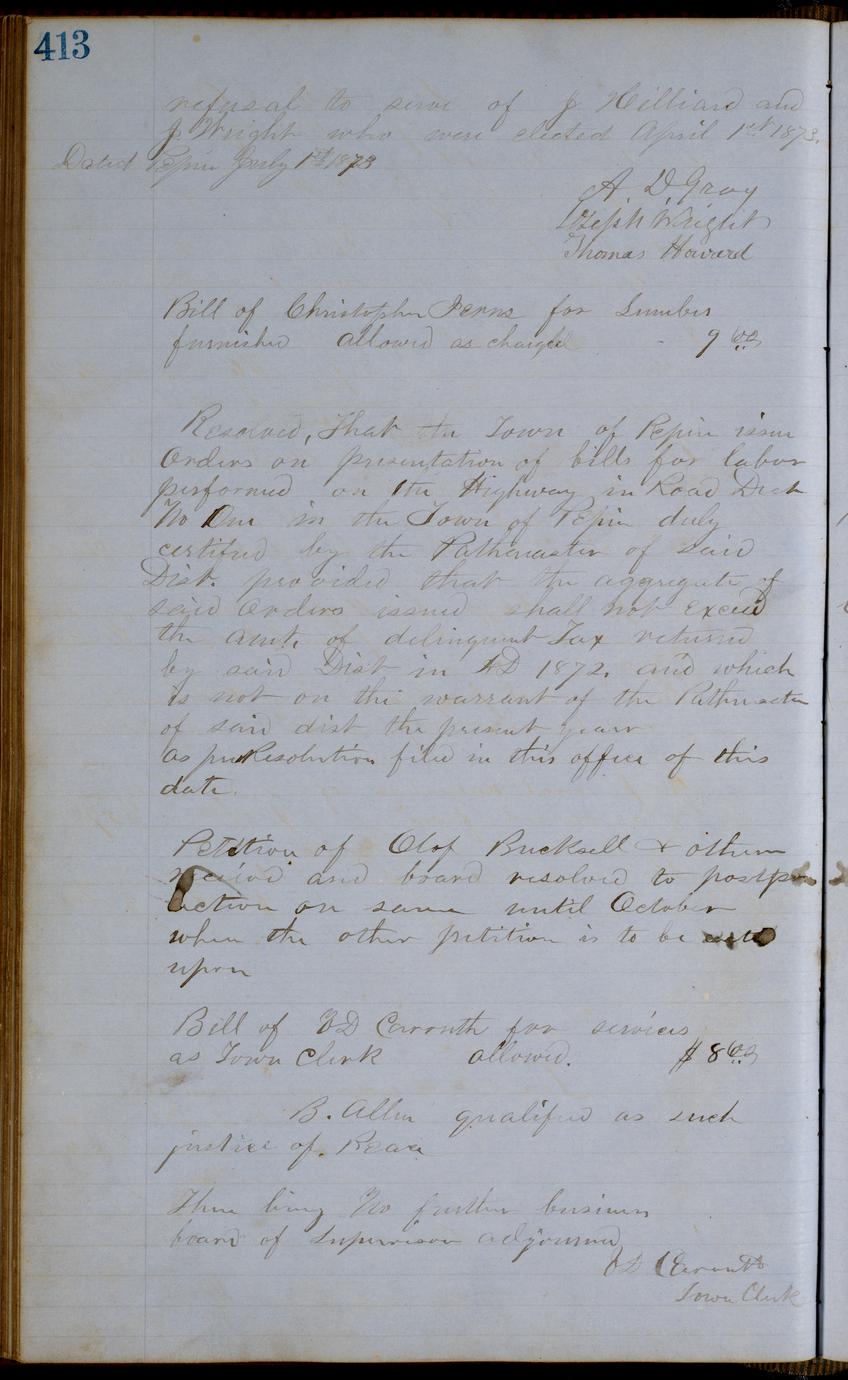 413
refusal to serve of J Hilliard and
J Wright who were elected April 1st 1873.
Dated Pepin July 1st 1873
A D Gray
Joseph Wright
Thomas Howard
Bill of Christopher Ferns for Lumber
furnished allowed as charged 9 00
Resolved, That the Town of Pepin issue
Orders on presentation of bills for labor
performed on the Highway in Road Dist
No One in the Town of Pepin duly
certified by the Pathmaster of said
Dist. provided that the aggregate of
said Orders issued shall not exceed
the amt. of delinquent Tax returned
by said Dist in AD 1872. and which
is not on the warrant of the Pathmaster
of said dist the present year
as per Resolution filed in this office of this
date.
Petition of Olof Bucksell & others
received and board resolved to postpone
action on same until October
when the other petition is to be acted
upon
Bill of ED Carruth for services
as Town Clerk allowed. $ 8 00
B. Allen qualified as such
justice of Peace
There being No further business
board of Supervisors adjourned
ED Carruth
Town Clerk